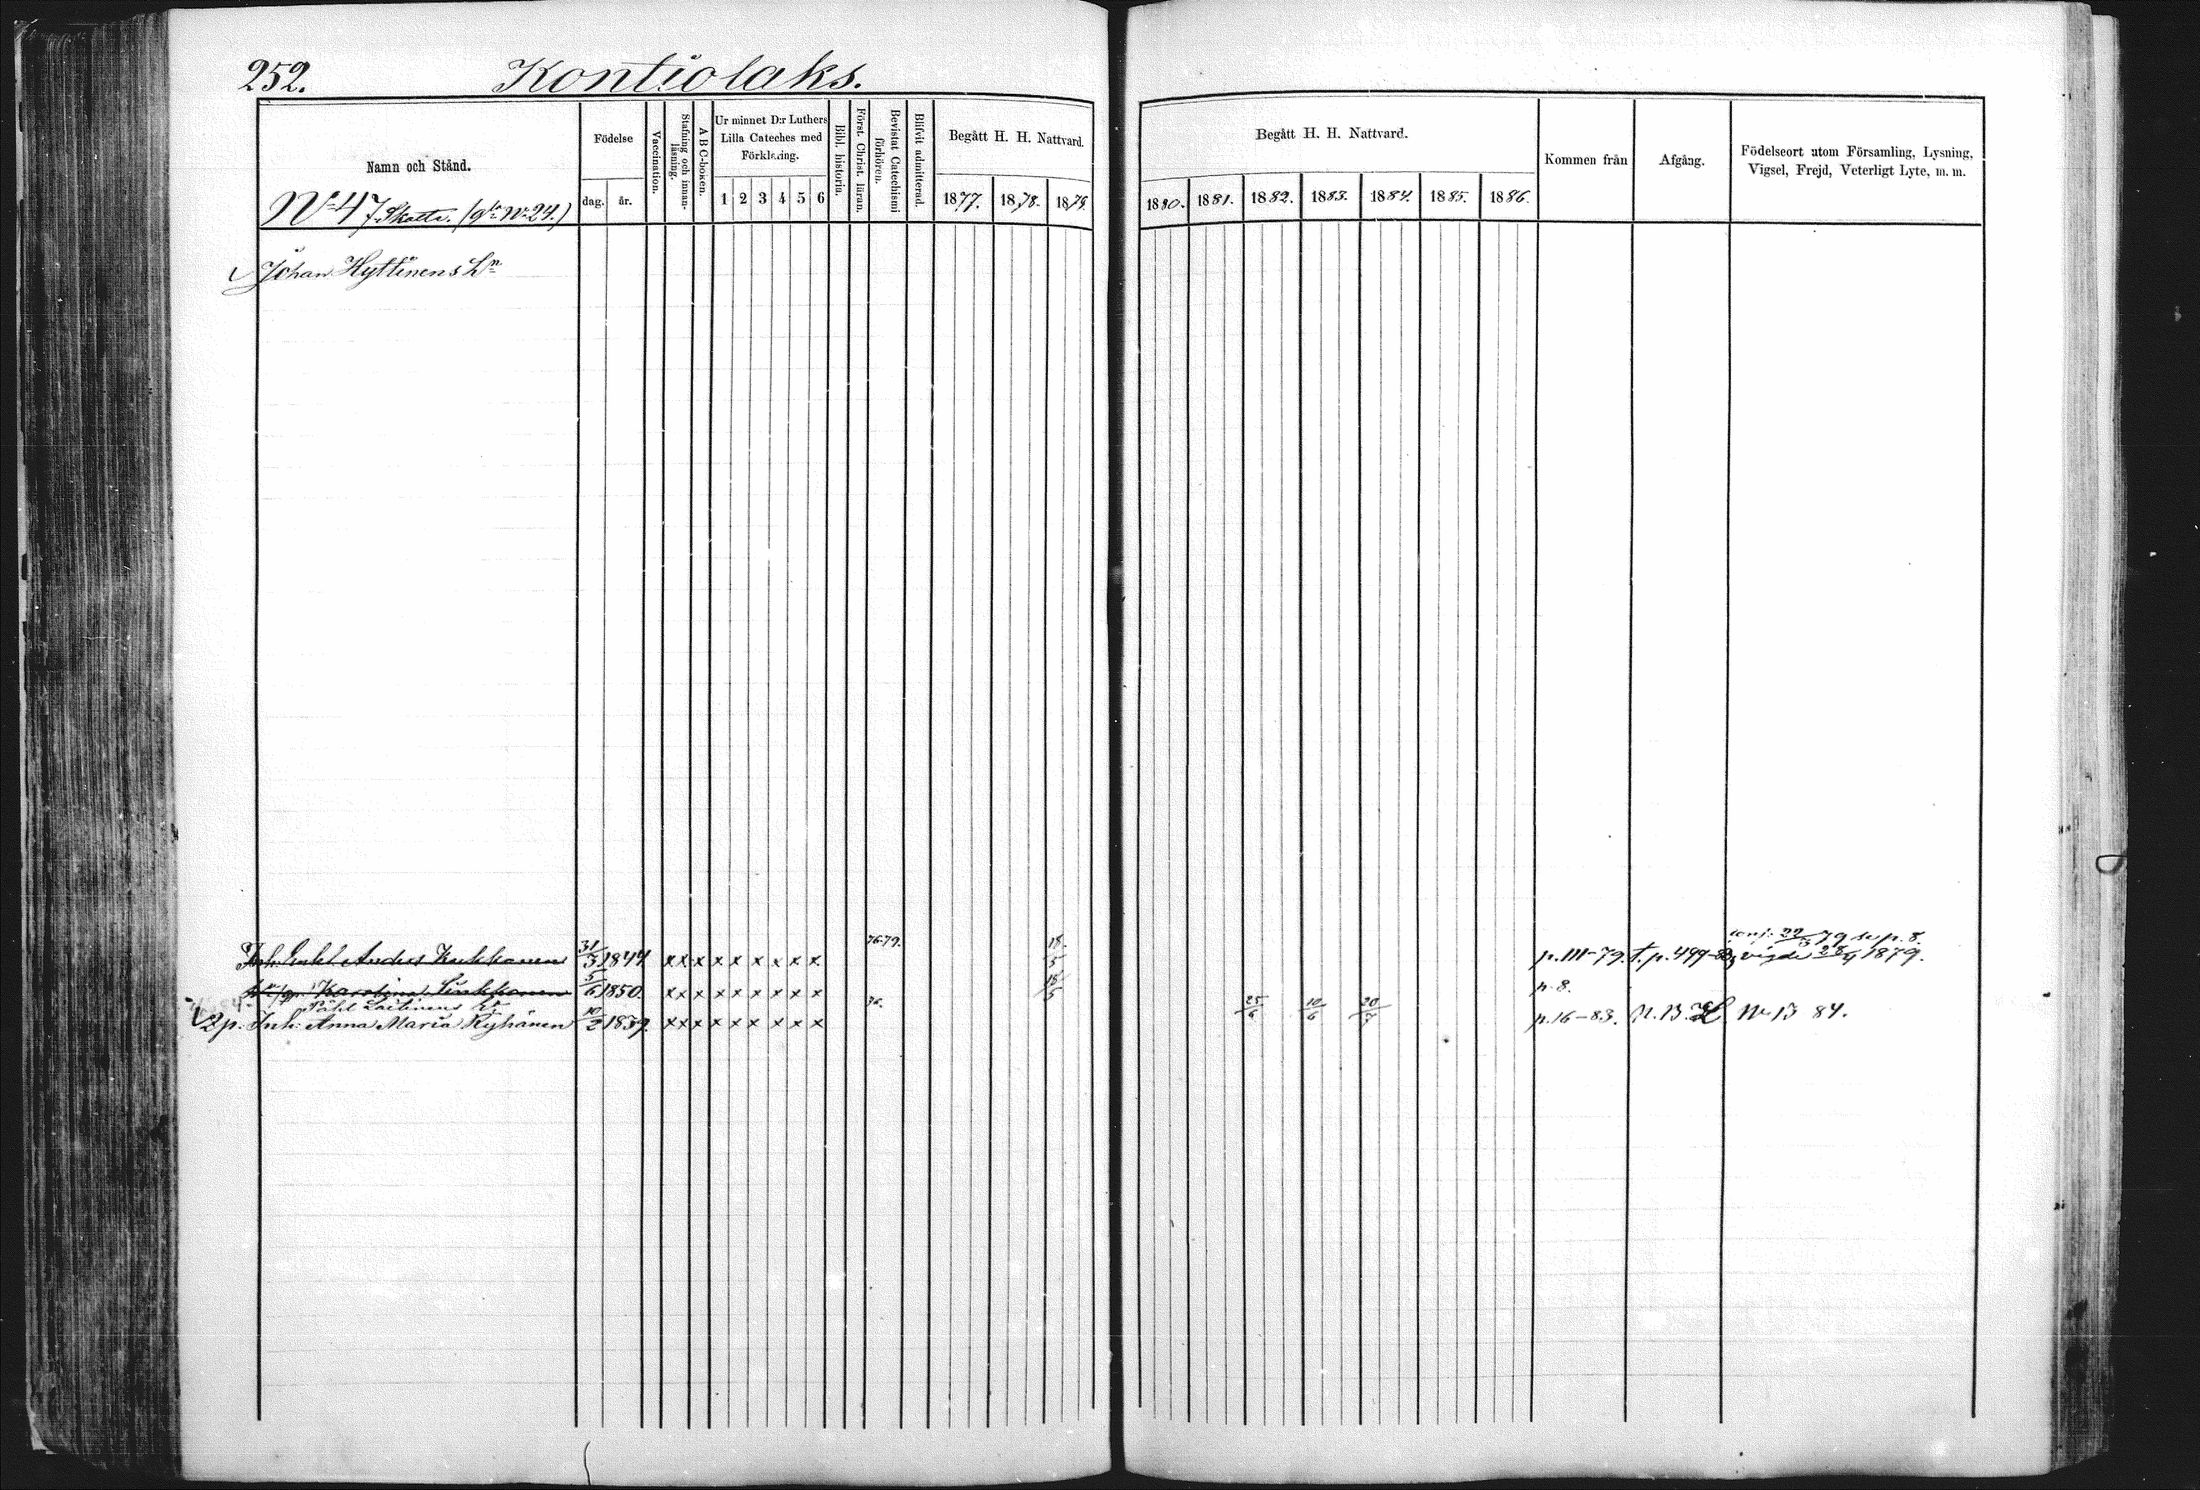 252.
Kontiolaks.
Namn och Stånd.
Födelse
dag.
år.
Vaccination.
Stafning och innan-
läsning.
A B C-boken.
Ur minnet D:r Luthers
Lilla Cateches med
Förklaring.
1 2 3 4 5 6
Bibl. historia.
Först. Christ. läran.
Bevistat Catechismi
förhören.
Blifvit admitterad.
Begått H. H. Nattvard.
1877. 1878. 1879.
Begått H. H. Nattvard.
1880. 1881. 1882. 1883. 1884. 1885. 1886.
Kommen från
Afgång.
Födelseort utom Församling, Lysning,
Vigsel, Frejd, Veterligt Lyte, m. m.
No 47 Skatte. (gla No 24.)
Johan Hyttinens Ln
Inh. Enkl. Anders Kukkonen 31/3 1844 x x x x x x x x x 76-79. 18/5 p. 111-79. t. p. 499-83 22/3 79 se p. 8. vigde 28/9 1879.
Karolina Sinkkonen 5/6 1850. x x x x x x x x x 18/5 p. 8.
Påhl Laitinens
2p. Inh. Anna Maria Ryhänen 10/2 1839. x x x x x x x x x 76. 25/6 10/6 20/7 p. 16-83. N. 13. No 13 84.